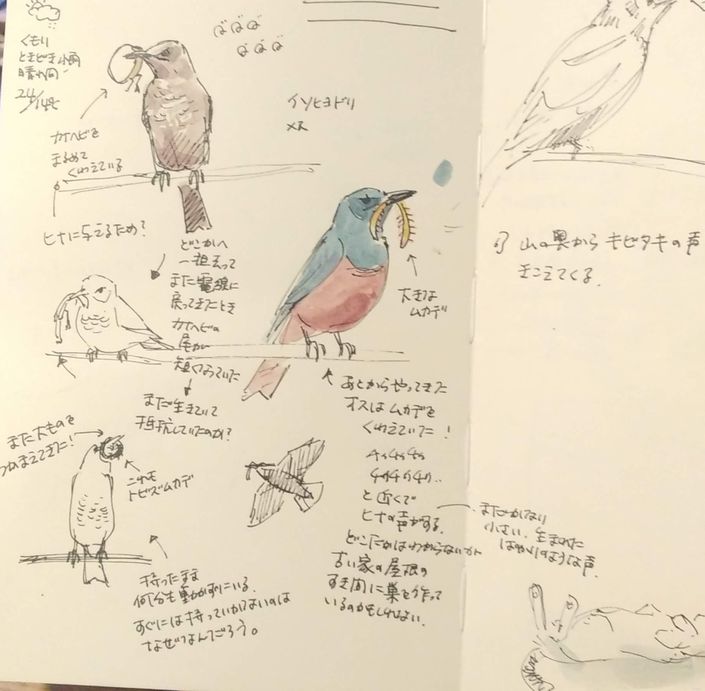 くもり
ときどき小雨
晴れ間
24/14℃
カナヘビを
まるめて
くわえている
ヒナに与えるため?
イソヒヨドリ
メス
どこかへ
一担去って
また電線に
戻ってきたとき
カナヘビの
尾が
短くなっていた
まだ生きていて
抵抗していたのか?
大きな
ムカデ
あとからやってきた
オスはムカデを
くわえていた!
と近くで
ヒナの声がする。
どこだかはわからないが
古い家の屋根の
すき間に巣を作って
いるのかもしれない。
まだかなり
小さい、生まれた
ばかりのような声。
また大ものを
つかまえてきた!
これも
トビズムカデ
持ったまま
何分も動かずにいる。
すぐには持っていかないのは
なぜなんだろう。
山の奥からキビタキの声
きこえてくる。